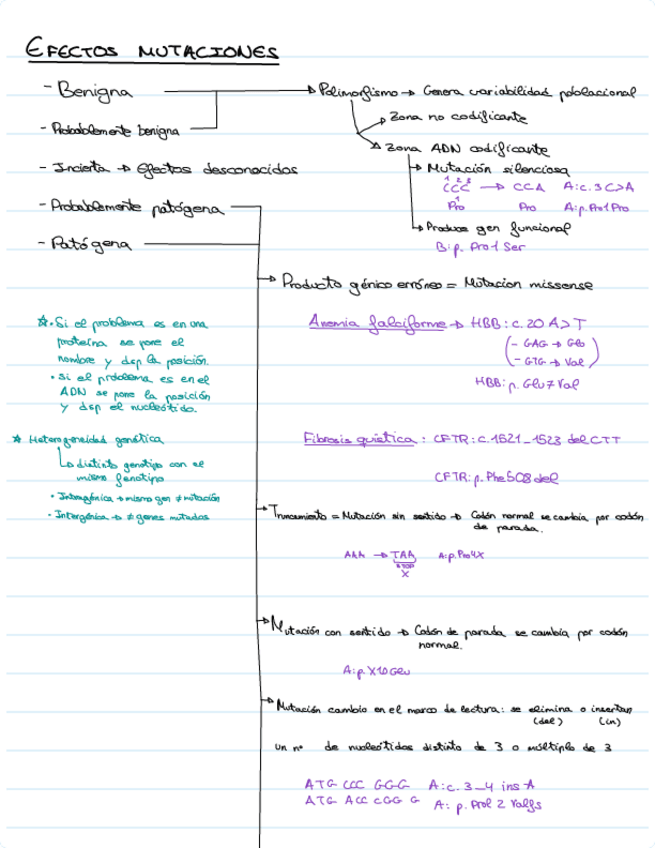 EFECTOS MUTACIONES
- Benigna → Polimorfismo → Genera variabilidad poblacional
→ Zona no codificante
- Probablemente benigna
→ Zona ADN codificante
- Incierta → Efectos desconocidos
→ Mutación silenciosa
1 2 3
CCC → CCA A:c.3C>A
1
Pro Pro A:p.Pro1Pro
- Probablemente patógena
→ Produce gen funcional
B:p. Pro1 Ser
- Patógena
→ Producto génico erróneo = Mutacion missense
Anemia falciforme → HBB:c.20 A>T
- GAG → Glu
- GTG → Val
HBB:p. Glu7Val
☆ · Si el problema es en una
proteína se pone el
nombre y dsp la posición.
· si el problema es en el
ADN se pone la posición
y dsp el nucleótido.
☆ Heterogeneidad genética
↳ distinto genotipo con el
mismo fenotipo
· Intragénica → mismo gen ≠ mutación
· Intergénica → ≠ genes mutados
Fibrosis quística : CFTR:c.1521_1523 delCTT
CFTR:p.Phe508del
→ Truncamiento = Mutación sin sentido → Codón normal se cambia por codón
de parada.
AAA → TAA A:p.Pro4X
STOP
X
→ Mutación con sentido → Codón de parada se cambia por codón
normal.
A:p.X10Glu
→ Mutación cambio en el marco de lectura: se elimina o insertan
(del) (in)
un nº de nucleótidos distinto de 3 o múltiplo de 3
ATG CCC GGG A:c.3_4 ins A
ATG ACC CGG G A: p.Pro 2 Valfs